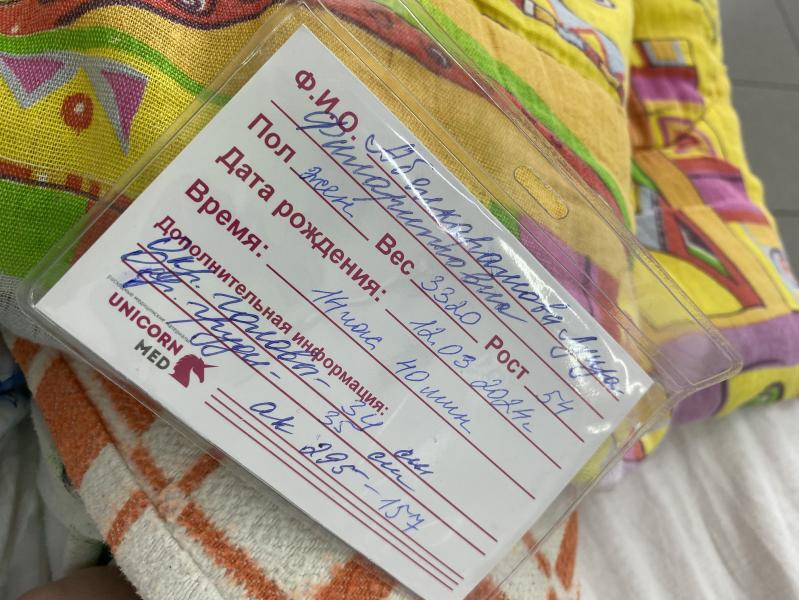 Ф.И.О. Луизы
Филаритовна
Пол жен Вес 3320 Рост 54
Дата рождения: 12.03.2024г
Время: 14 час 40 мин
Дополнительная информация:
Окр. головы - 34 см
Окр. груди - 33 см
ОК 295 - 157
UNICORN
MED